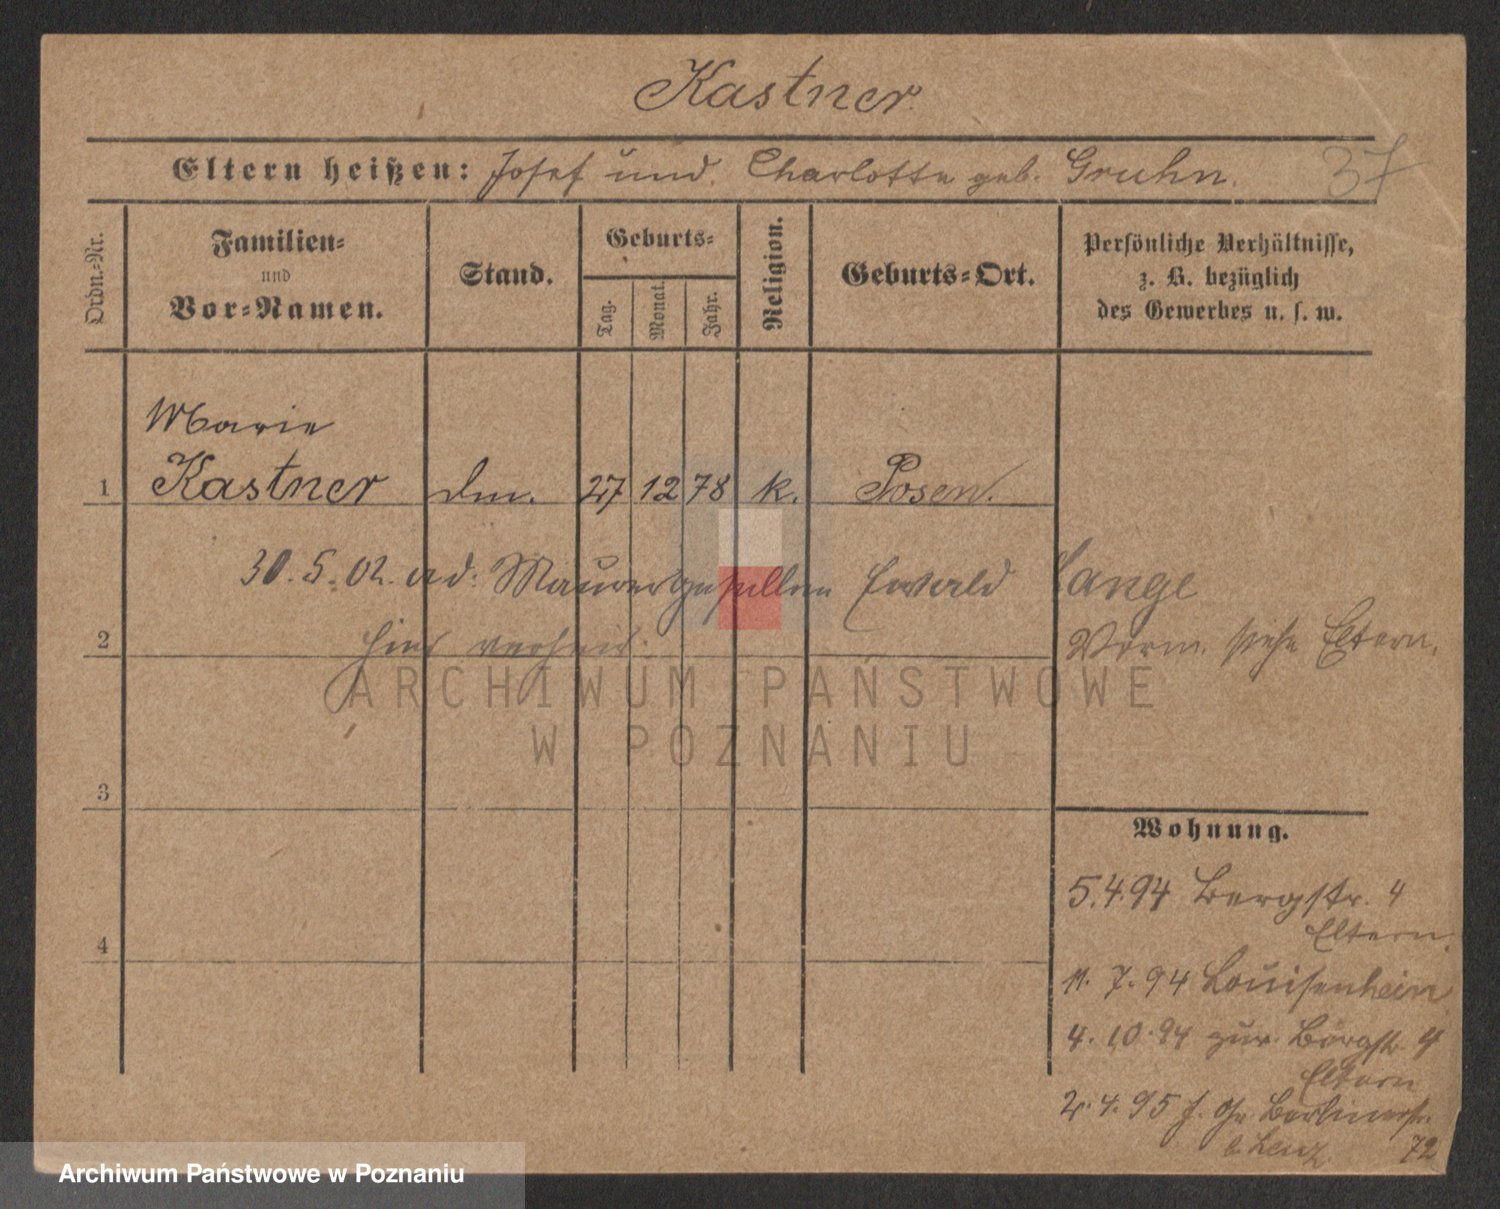 Kastner.
Eltern heißen: Josef und Charlotte geb. Gruhn.
37
Ordn.-Nr.
Familien-
und
Vor-Namen.
Stand.
Geburts-
Tag.
Monat.
Jahr.
Religion.
Geburts-Ort.
Persönliche Verhältnisse,
z. B. bezüglich
des Gewerbes u. s. w.
Marie
1 Kastner 27 12 78 k. Posen.
30.5.02. ad: Maurergesellen Ewald Lange
2 hier verheir.
Vorm. siehe Eltern.
ARCHIWUM PAŃSTWOWE
W POZNANIU
3
Wohnung.
5.4.94 Bergstr. 4
Eltern.
4
11. 7. 94 Louisenhein
4. 10. 94 zur. Bergstr. 4
Eltern
2. 4. 95 Berlinerstr.
b. Lenz 72
Archiwum Państwowe w Poznaniu